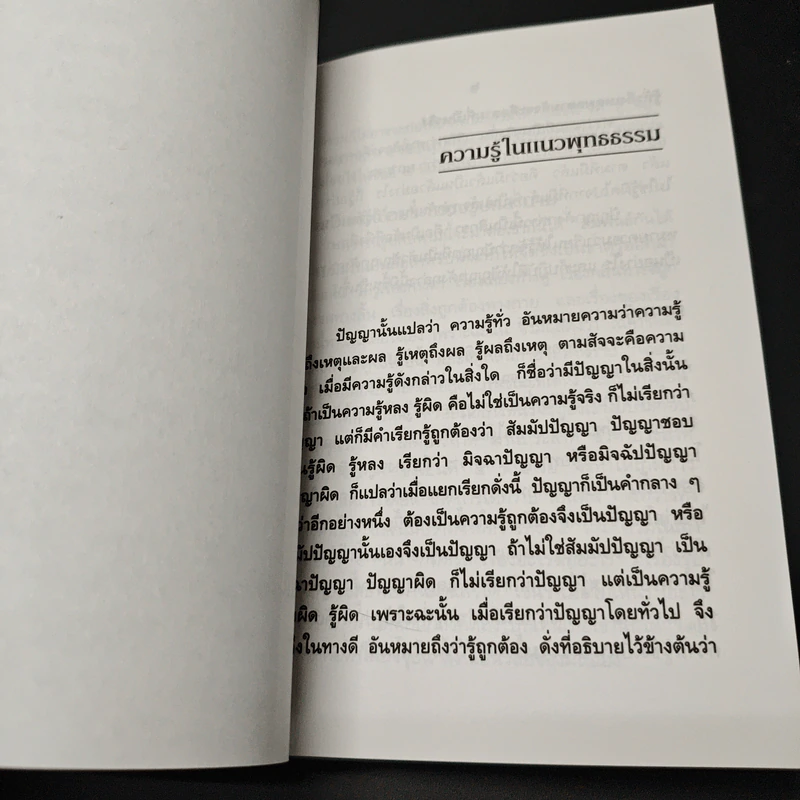 ความรู้ในแนวพุทธธรรม
ปัญญานั้นแปลว่า ความรู้ทั่ว อันหมายความว่าความรู้
ถึงเหตุและผล รู้เหตุถึงผล รู้ผลถึงเหตุ ตามสัจจะคือความ
เมื่อมีความรู้ดังกล่าวในสิ่งใด ก็ชื่อว่ามีปัญญาในสิ่งนั้น
ถ้าเป็นความรู้หลง รู้ผิด คือไม่ใช่เป็นความรู้จริง ก็ไม่เรียกว่า
ญา แต่ก็มีคำเรียกรู้ถูกต้องว่า สัมมัปปัญญา ปัญญาชอบ
รู้ผิด รู้หลง เรียกว่า มิจฉาปัญญา หรือมิจฉัปปัญญา
ญาผิด ก็แปลว่าเมื่อแยกเรียกดั่งนี้ ปัญญาก็เป็นคำกลาง ๆ
ว่าอีกอย่างหนึ่ง ต้องเป็นความรู้ถูกต้องจึงเป็นปัญญา หรือ
มัปปัญญานั้นเองจึงเป็นปัญญา ถ้าไม่ใช่สัมมัปปัญญา เป็น
ฉาปัญญา ปัญญาผิด ก็ไม่เรียกว่าปัญญา แต่เป็นความรู้
ผิด รู้ผิด เพราะฉะนั้น เมื่อเรียกว่าปัญญาโดยทั่วไป จึง
ในทางดี อันหมายถึงว่ารู้ถูกต้อง ดั่งที่อธิบายไว้ข้างต้นว่า